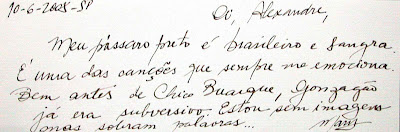 10-6-2008-SP
Oi, Alexandre,
Meu pássaro preto é brasileiro e sangra.
É uma das canções que sempre me emociona.
Bem antes de Chico Buarque, Gonzagão
já era subversivo. Estou sem imagens
mas sobram palavras...